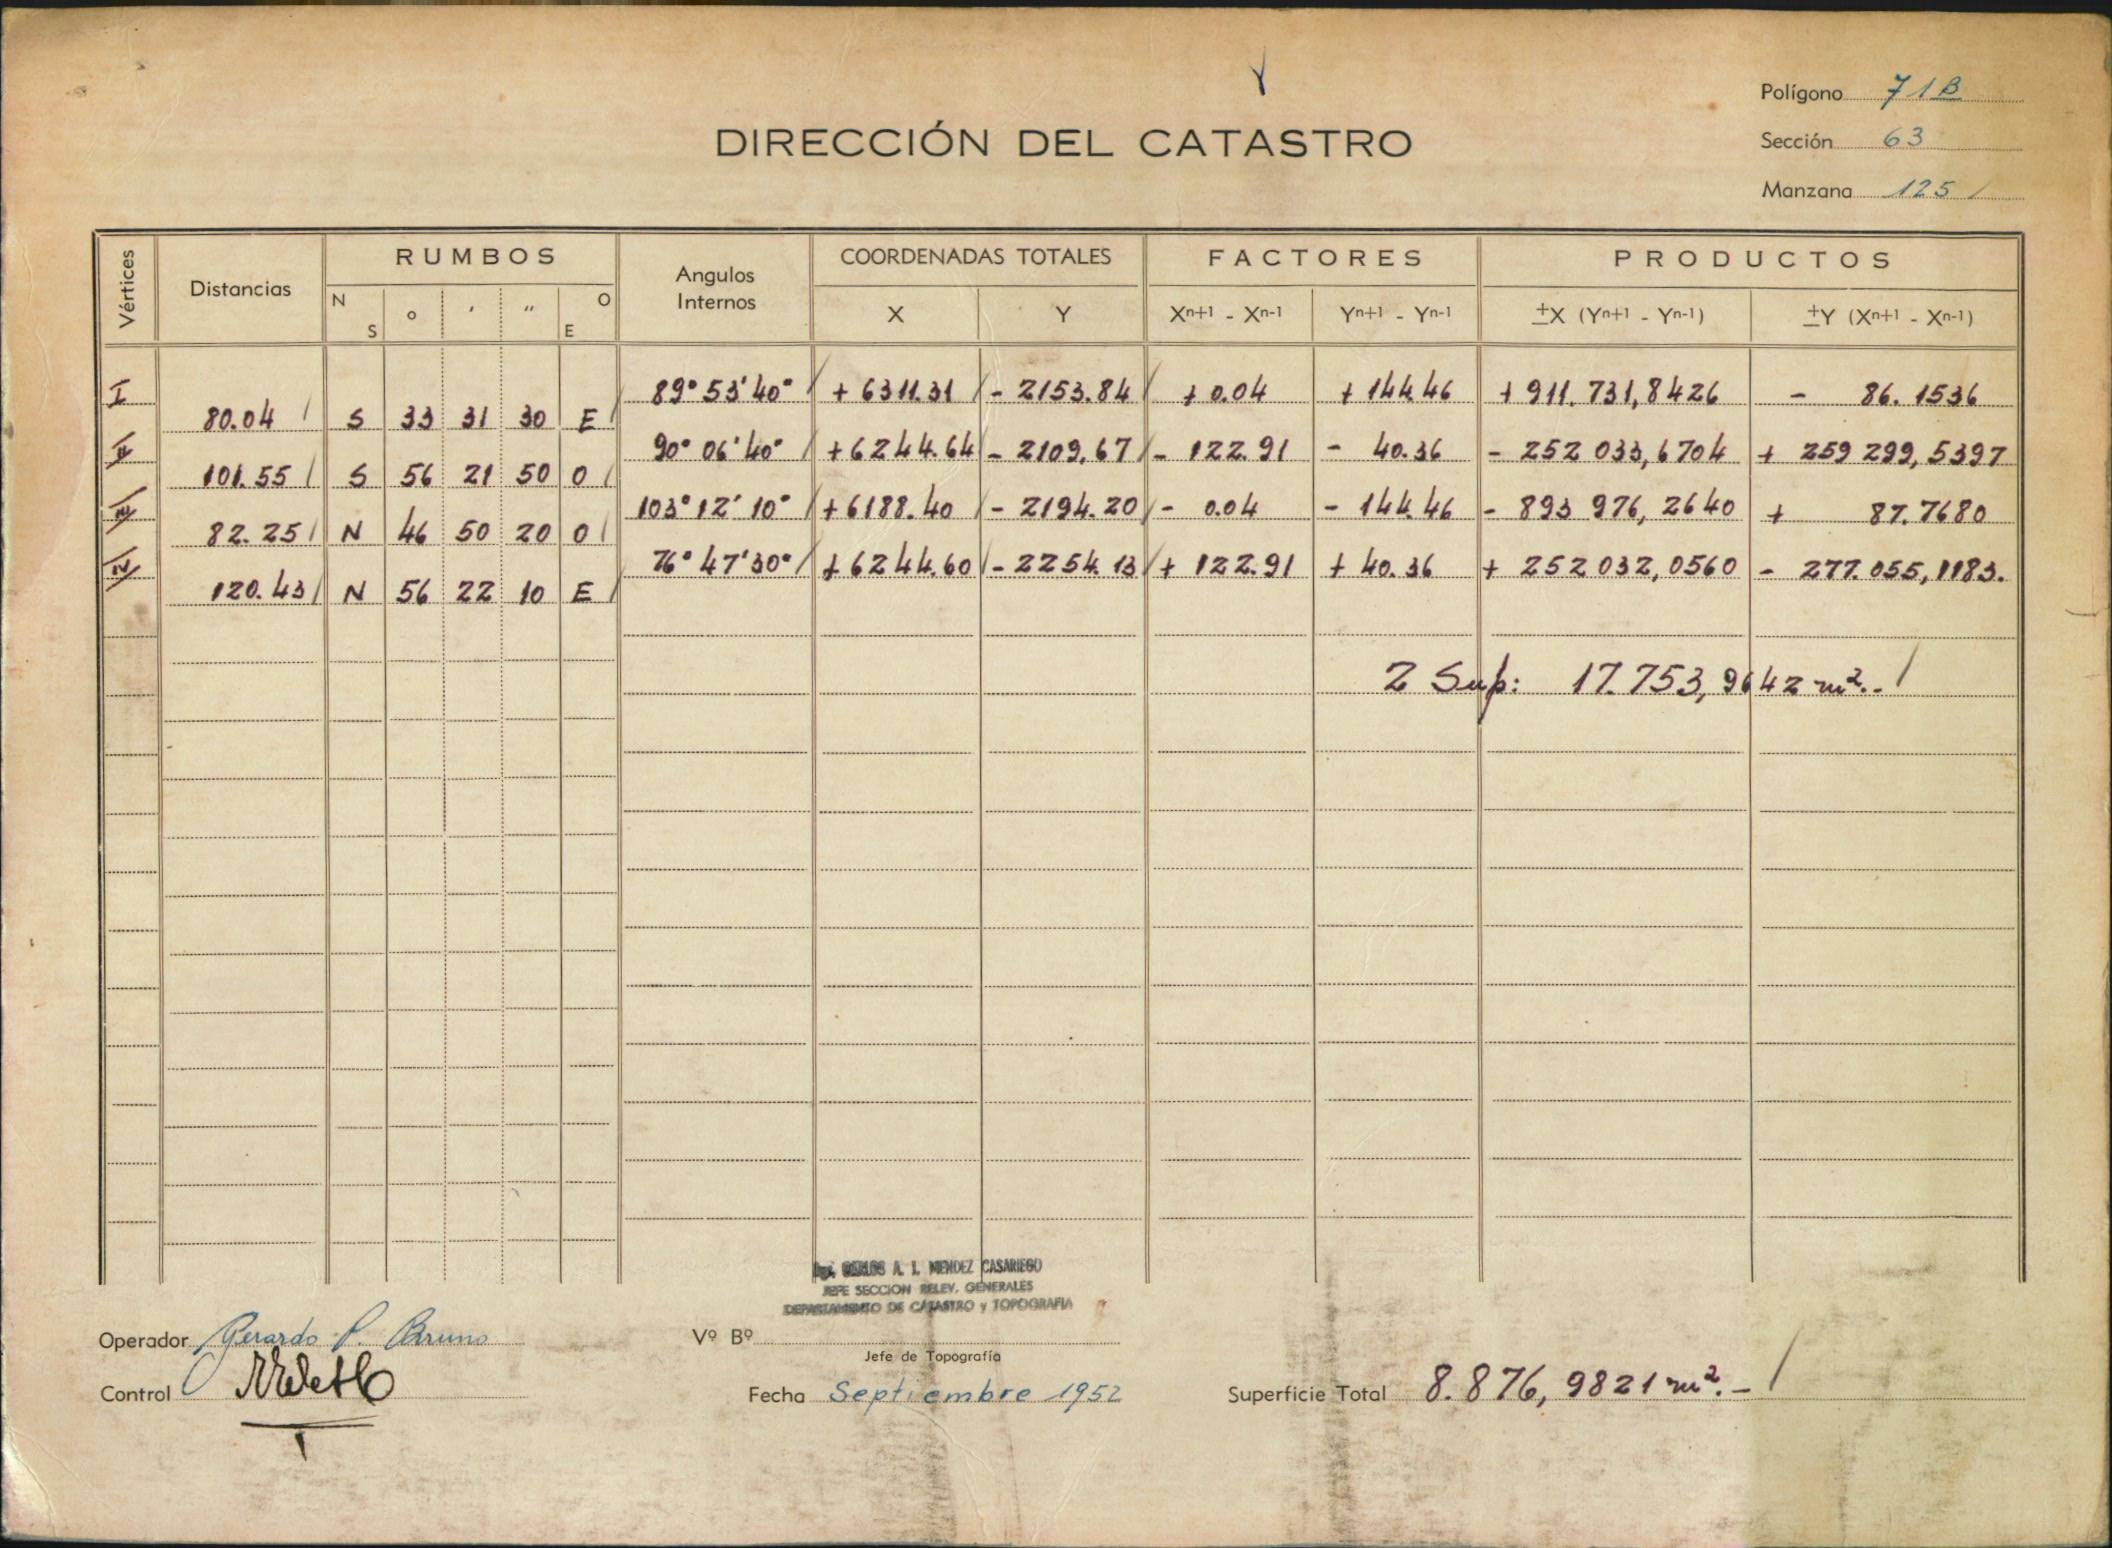 Y
Polígono 71B
DIRECCIÓN DEL CATASTRO
Sección 63
Manzana 125
Vértices Distancias RUMBOS Angulos Internos COORDENADAS TOTALES FACTORES PRODUCTOS
N S ° ' " O E X Y Xn+1 - Xn-1 Yn+1 - Yn-1 ±X (Yn+1 - Yn-1) ±Y (Xn+1 - Xn-1)
I 89° 53' 40" + 6311.31 - 2153.84 + 0.04 + 144.46 + 911.731,8426 - 86.1536
80.04 S 33 31 30 E
II 90° 06' 40" + 6244.64 - 2109.67 - 122.91 - 40.36 - 252 033,6704 + 259 299,5397
101.55 S 56 21 50 O
III 103° 12' 10" + 6188.40 - 2194.20 - 0.04 - 144.46 - 893 976,2640 + 87.7680
82.25 N 46 50 20 O
IV 76° 47' 30" + 6244.60 - 2254.13 + 122.91 + 40.36 + 252 032,0560 - 277.055,1183.
120.43 N 56 22 10 E
2 Sup: 17.753,9642 m².-
Ing. CARLOS A. I. MENDEZ CASARIEGO
JEFE SECCION RELEV. GENERALES
DEPARTAMENTO DE CATASTRO y TOPOGRAFIA
Operador Gerardo P. Bruno
Vº Bº
Jefe de Topografía
Control
Fecha Septiembre 1952
Superficie Total 8.876,9821 m².-